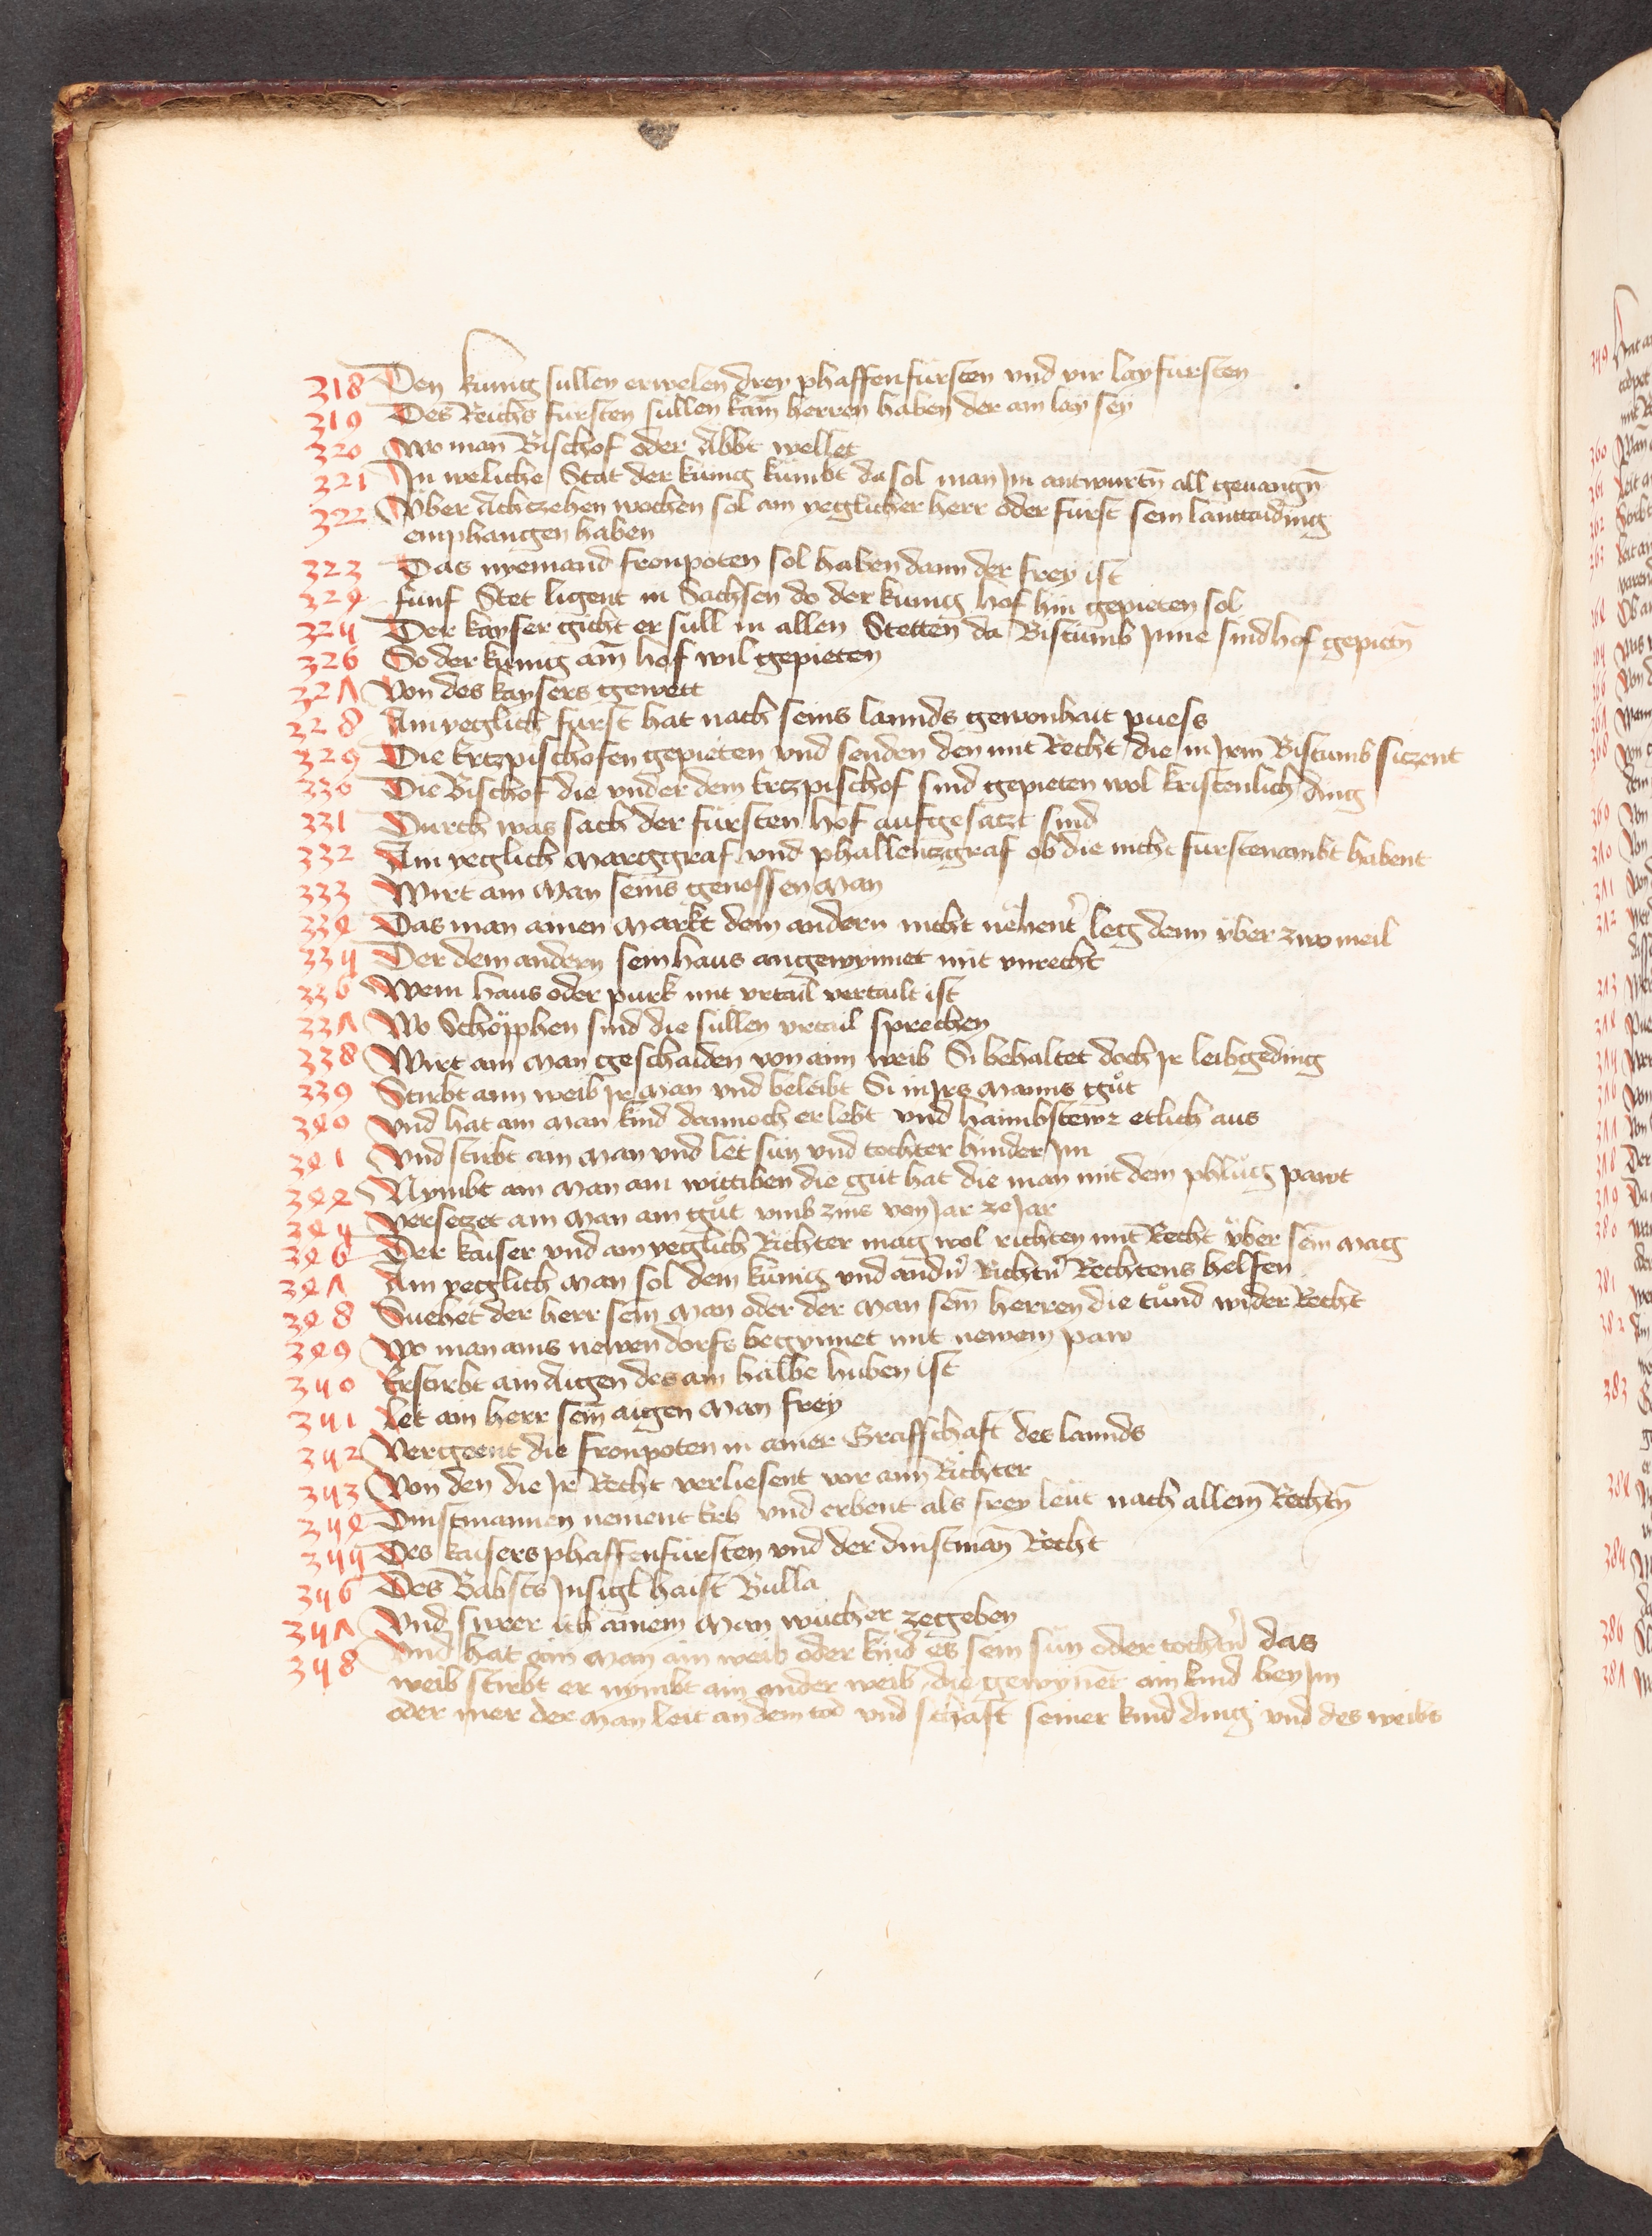 318 Den kunig sullen erwelen drey phaffenfürsten vnd vir layfürsten
319 Des Reichs fürsten süllen kain herren haben der ain lay sey
320 Wo man Bischof oder Äbbt wellet
321 In weliche Stat der künig kümbt da sol man Im antwurtn̄ all geuangn̄
322 Über Achczehen wochen sol ain yeglicher herr oder fürst sein lanttaiding
emphangen haben
323 Das nyemand fronpoten sol haben dann der frey ist
324 fünf Stet ligent in Sachsen do der kunig hof hin gepieten sol
325 Der kayser gicht er süll in allen Stetten da Bistumb Inne sind hof gepietn̄
326 So der künig ain hof wil gepieten
327 Von des kaysers gewett
328 Ain yeglich fürst hat nach seins lannds gewonhait puess
329 Die Ertzpischofen gepieten vnd senden den mit Recht die in Irm Bistumb siczent
330 Die Bischof die vnder dem Ertzpischof sind gepieten wol kristenlich ding
331 Durch was sach der fürsten hof aufgesatzt sind
332 Ain yeglich Marggraf vnd phallentzgraf ob die nicht furstenambt habent
333 Wirt ain Man seins genossen Man
334 Das man ainen Markt dem andern nicht nëhent̉ leg denn über zwo meil
335 Der dem andern sein haus angewynnet mit vnrecht
336 Wem haus oder purk mit vrtail vertailt ist
337 Wo Schöpphen sind die süllen vrtail sprechen
338 Wirt ain Man geschaiden von aim weib Si behaltet doch Ir leibgeding
339 Stirbt aim weib Ir Man vnd beleibt Si in Irs Manns guͦt
340 Vnd hat ain Man kind dannoch er lebt vnd haimbstewr etlich aus
341 Vnd stirbt ain Man vnd let sün vnd tochter hinder Im
344 Nymbt ain Man ain wittiben die gut hat die man mit dem phluͦg pawt
345 Versetzet ain Man ain guͦt vmb zins von Jar ze Jar
346 Der kaiser vnd ain yeglich Richter mag wol richten mit Recht über sein Mag
347 Ain yeglich Man sol dem künig vnd andn̉ Richtn̉ Rechtens helfen
348 Suehet der herr sein Man oder der Man sein herren die tuͦnd wider Recht
349 Wo man ains newen dorfs begynnet mit newem paw
350 Erstirbt ain Aigen des ain halbe huben ist
351 Let ain herr sein aigen Man frey
352 Vergeent die fronpoten in ainer Grafschaft des lannds
353 Von den die Ir Recht verliesent vor aim Richter
354 Dinstmannen nement Erb vnd erbent als frey leut nach allem Rechtn̄
355 Des kaisers phaffenfürsten vnd der dinstman Recht
356 Des Babsts Insigl haist Bulla
357 Vnd swer ich ainem Man wucher zegeben
358 Vnd hat ain Man ain weib oder kind es sein sün oder tochtn̉ das
weib stirbt er nymbt ain ander weib die gewynnet ain kind bey Im
oder mer der Man leit an dem tod vnd schaft seiner kind ding vnd des weibs